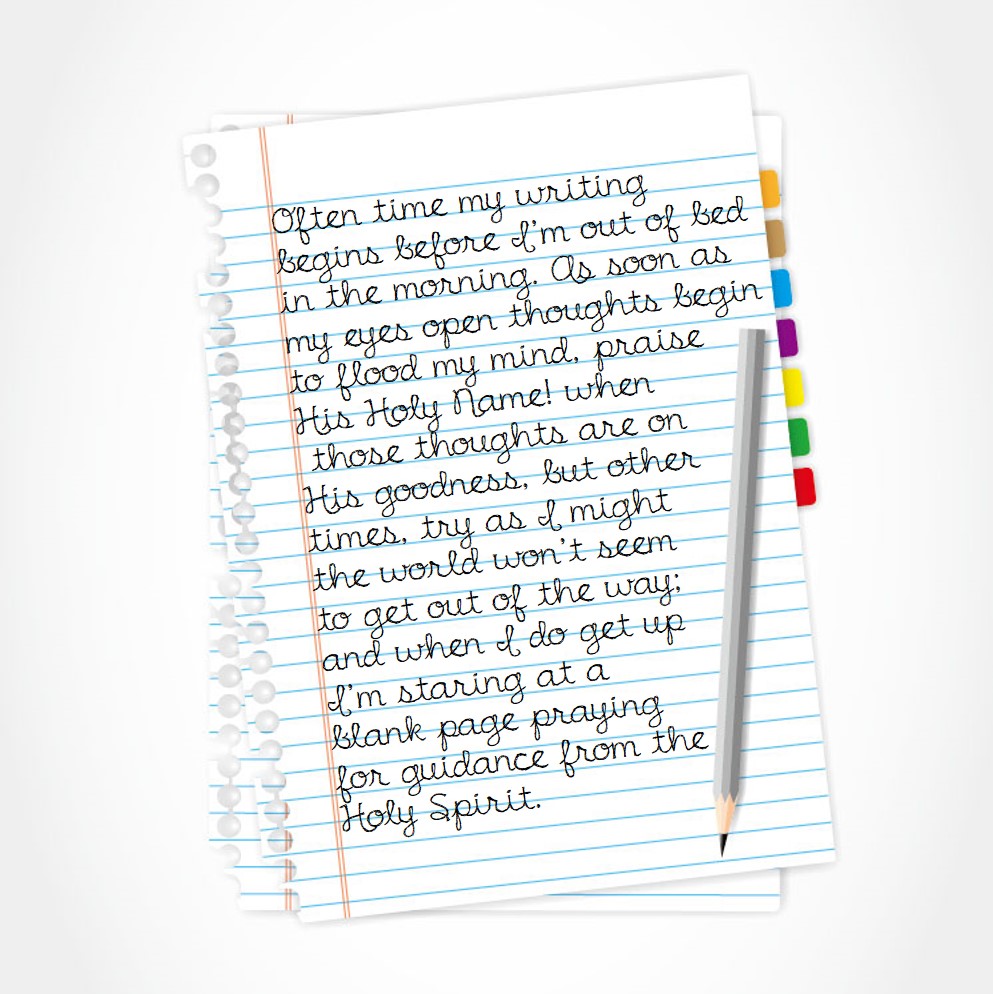 Often time my writing
begins before I'm out of bed
in the morning. As soon as
my eyes open thoughts begin
to flood my mind, praise
His Holy Name! when
those thoughts are on
His goodness, but other
times, try as I might
the world won't seem
to get out of the way;
and when I do get up
I'm staring at a
blank page praying
for guidance from the
Holy Spirit.